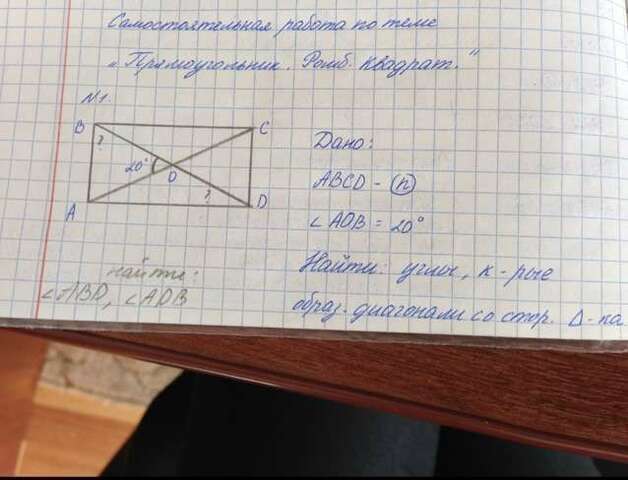 Самостоятельная работа по теме
„Прямоугольник. Ромб. Квадрат."
№1.
B
C
?
20°
O
?
A
D
Дано:
ABCD - п
∠AOB = 20°
Найти: углы, к-рые
образ. диагонали со стор. Δ-ка
найти:
∠ABD, ∠ADB